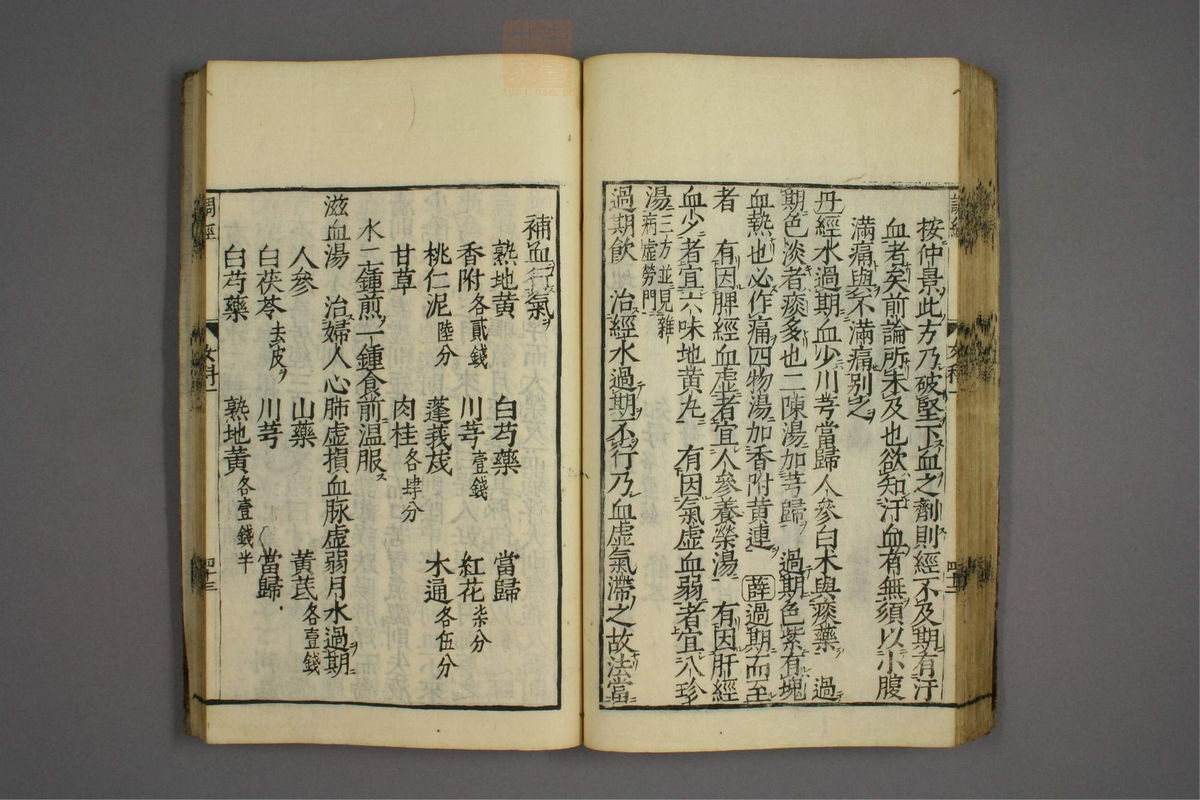 按仲景此方乃破堅下血之劑則經不及期有汙
血者矣前論所未及也欲知汙血有無須以小腹
滿痛與不滿痛別之
丹經水過期血少川芎當歸人參白朮與痰藥　過
期色淡者痰多也二陳湯加芎歸　過期色紫有塊
血熱也必作痛四物湯加香附黃連　薛過期而至
者　有因脾經血虛者宜人參養榮湯　有因肝經
血少者宜六味地黃丸　有因氣虛血弱者宜八珍
湯三方並見雜病虛勞門
過期飲　治經水過期不行乃血虛氣滯之故法當
補血行氣
熟地黃　白芍藥　當歸
香附各貳錢　川芎壹錢　紅花柒分
桃仁泥陸分　蓬莪茂　木通各伍分
甘草　肉桂各肆分
水二鍾煎一鍾食前溫服
滋血湯　治婦人心肺虛損血脉虛弱月水過期
人參　山藥　黃芪各壹錢
白茯苓去皮　川芎　當歸
白芍藥　熟地黃各壹錢半
調經
女科一
四十三